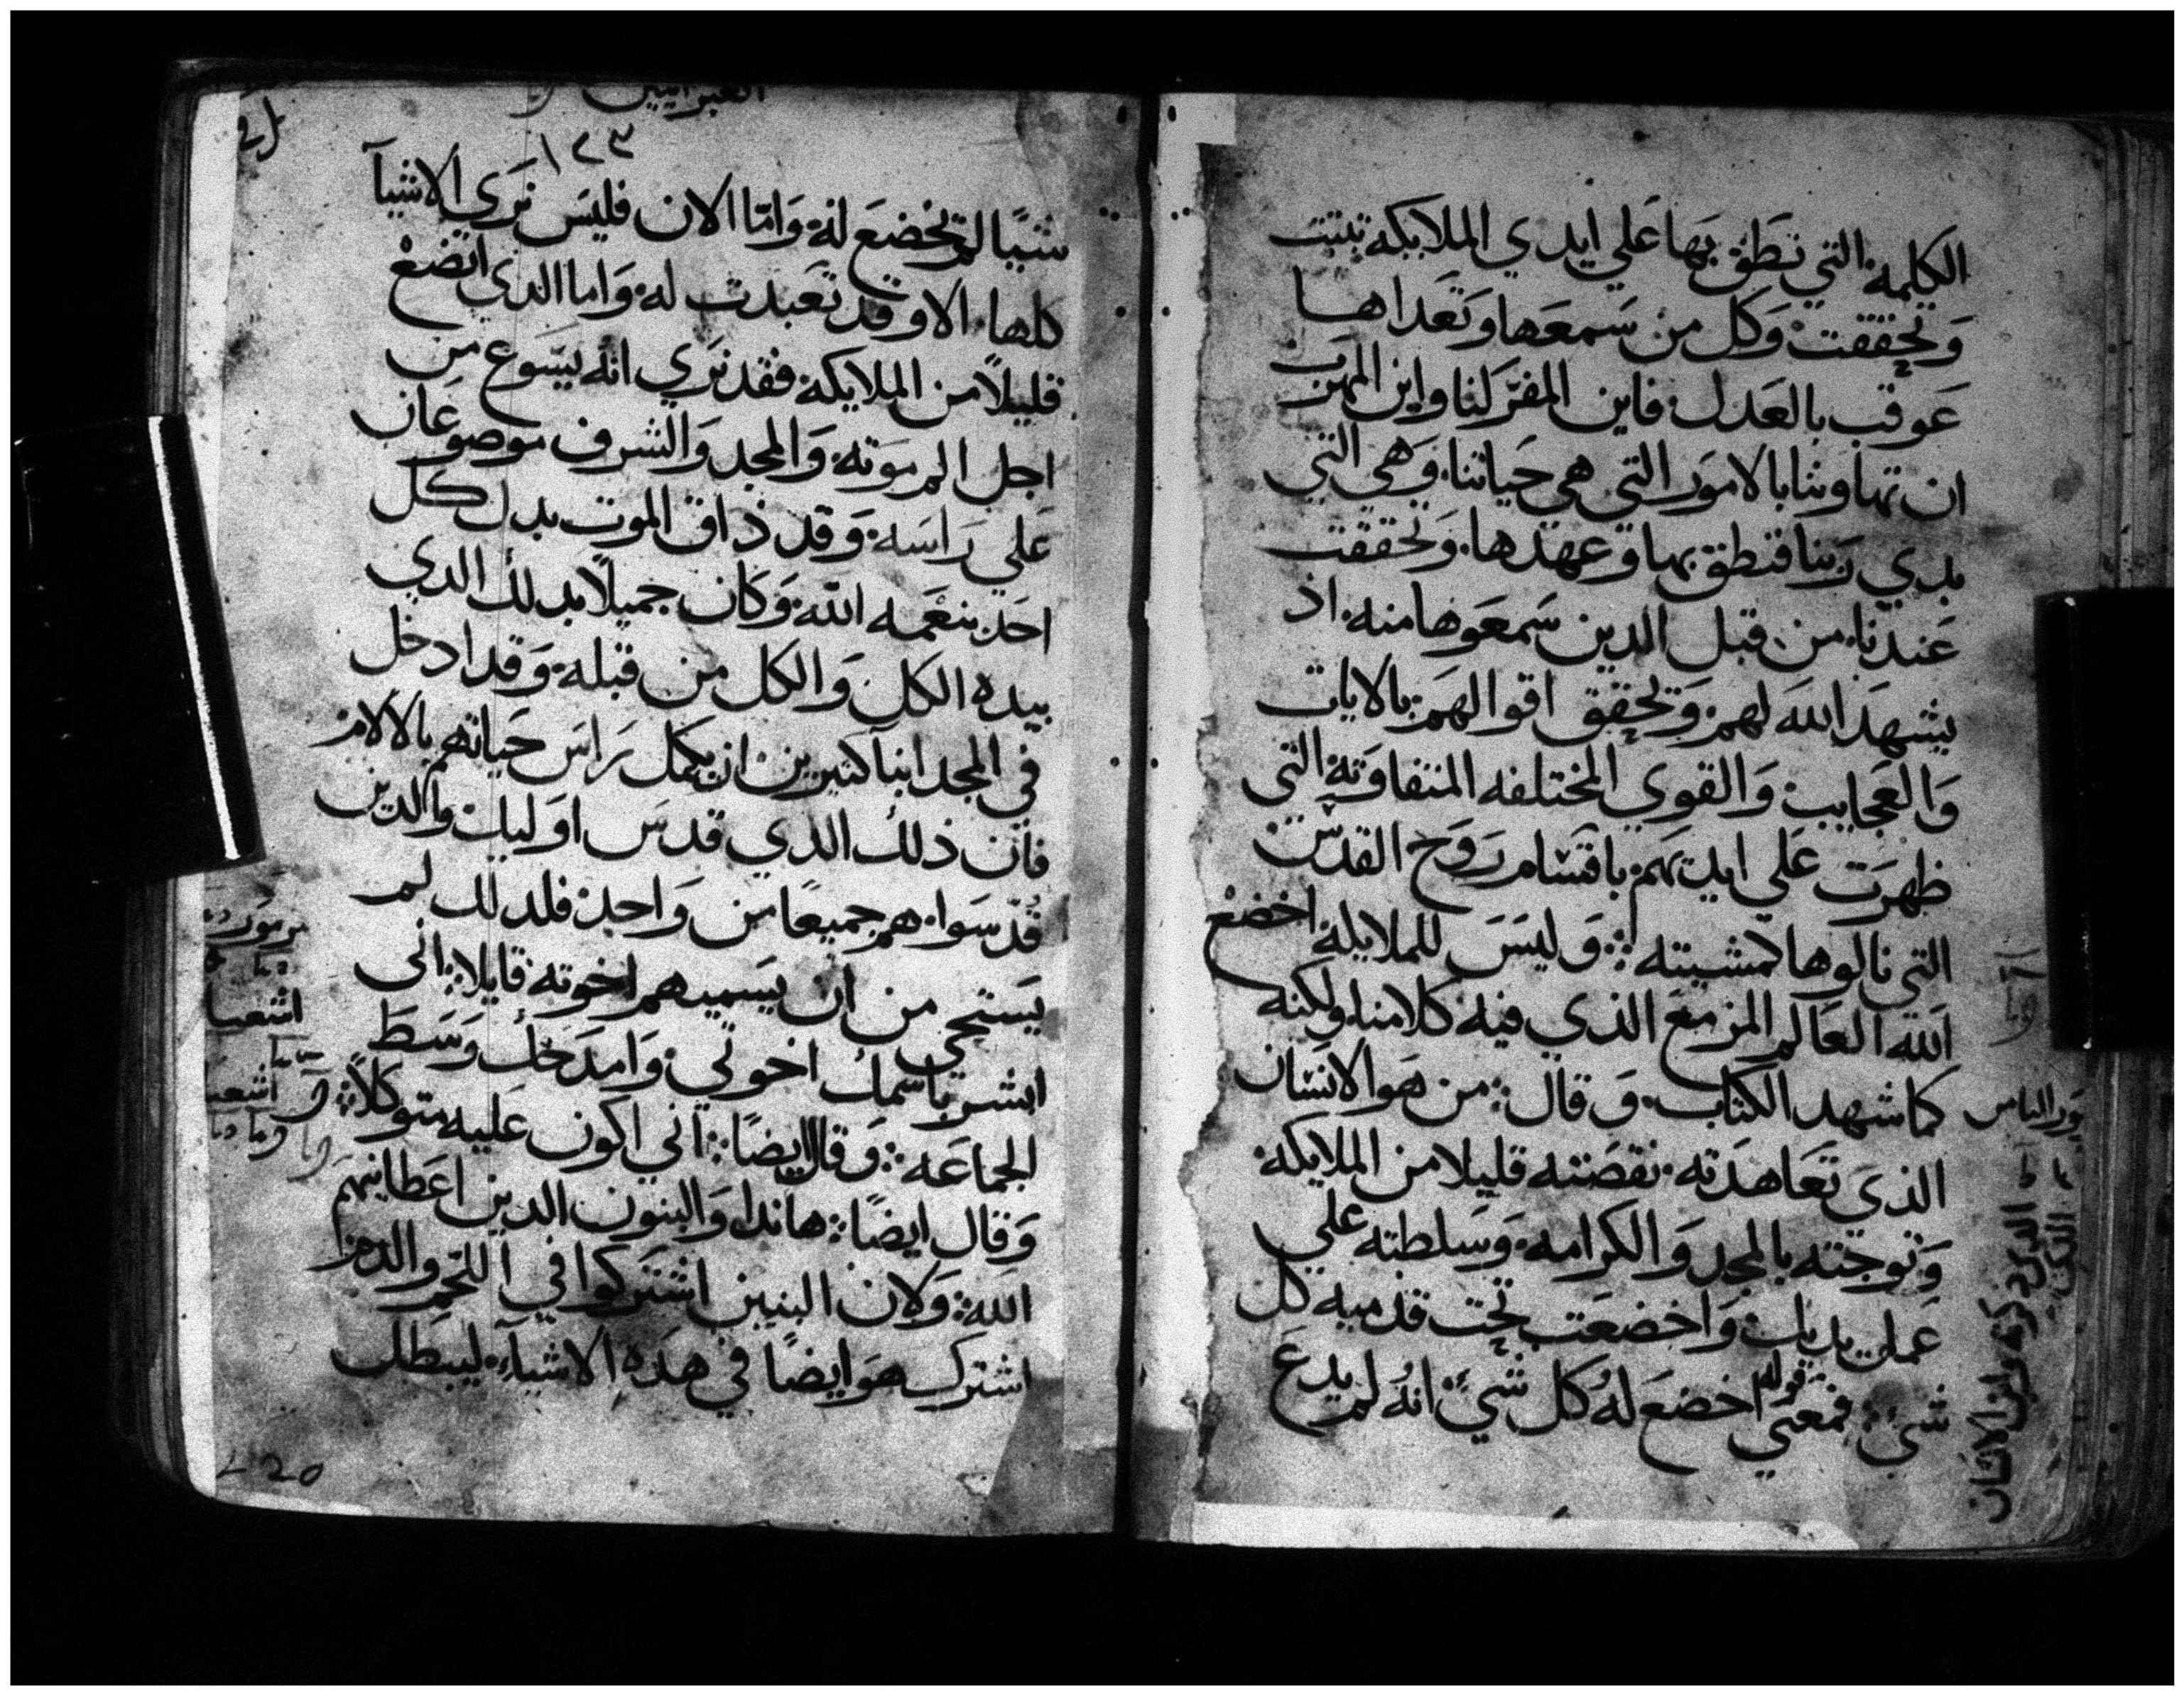 الكلمة التي نطق بها على ايدي الملايكة تثبتت
وتحققت وكل من سمعها وتعداها
عوقب بالعدل فاين المفر لنا واين المهرب
ان تهاوننا بالامور التي هي حياتنا وهي التي
بدي ربنا فنطق بها وعهدها وتحققت
عندنا من قبل الدين سمعوها منه اذ
يشهد الله لهم وتحقق اقوالهم بالايات
والعجايب والقوي المختلفه المتفاوته التي
ظهرت علي ايديهم باقسام روح القدس
التي نالوها كمشيته وليس للملايكة اخضع
الله العالم المزمع الذي فيه كلامنا ولكنه
كما شهد الكتاب وقال من هو الانسان
الذي تعاهدته نقصته قليلا من الملايكة
وتوجته بالمجد والكرامه وسلطته علي
عمل يديك واخضعت تحت قدميه كل
شي فمعني قوله اخضع له كل شي انه لم يدع
الذي ذكرته وابن الانسان
العبرانيين
١٢٣
شيا لم يخضع له واما الان فليس نري الاشيا
كلها الا وقد تعبدت له واما الذي اتضع
قليلا من الملايكة فقد نري انه يسوع من
اجل الم موته والمجد والشرف موضوعان
علي راسه وقد ذاق الموت بدل كل
احد بنعمه الله وكان جميلا بدلك الدي
بيده الكل والكل من قبله وقد ادخل
في المجد ابنا كثيرين ان يكمل راس حياتهم بالالام
فان ذلك الدي قدس اوليك والدين
قدسوا هم جميعا من واحد فلدلك لم
يستحي من ان يسميهم اخوته قايلا اني
ابشر باسمك اخوتي وامدحك وسط
الجماعه وقال ايضا اني اكون عليه متوكلا
وقال ايضا هاندا والبنون الدين اعطانيهم
الله ولان البنين اشتركوا في اللحم والدم
اشترك هو ايضا في هده الاشياء ليبطل
مزمور
اشعيا
اشعيا